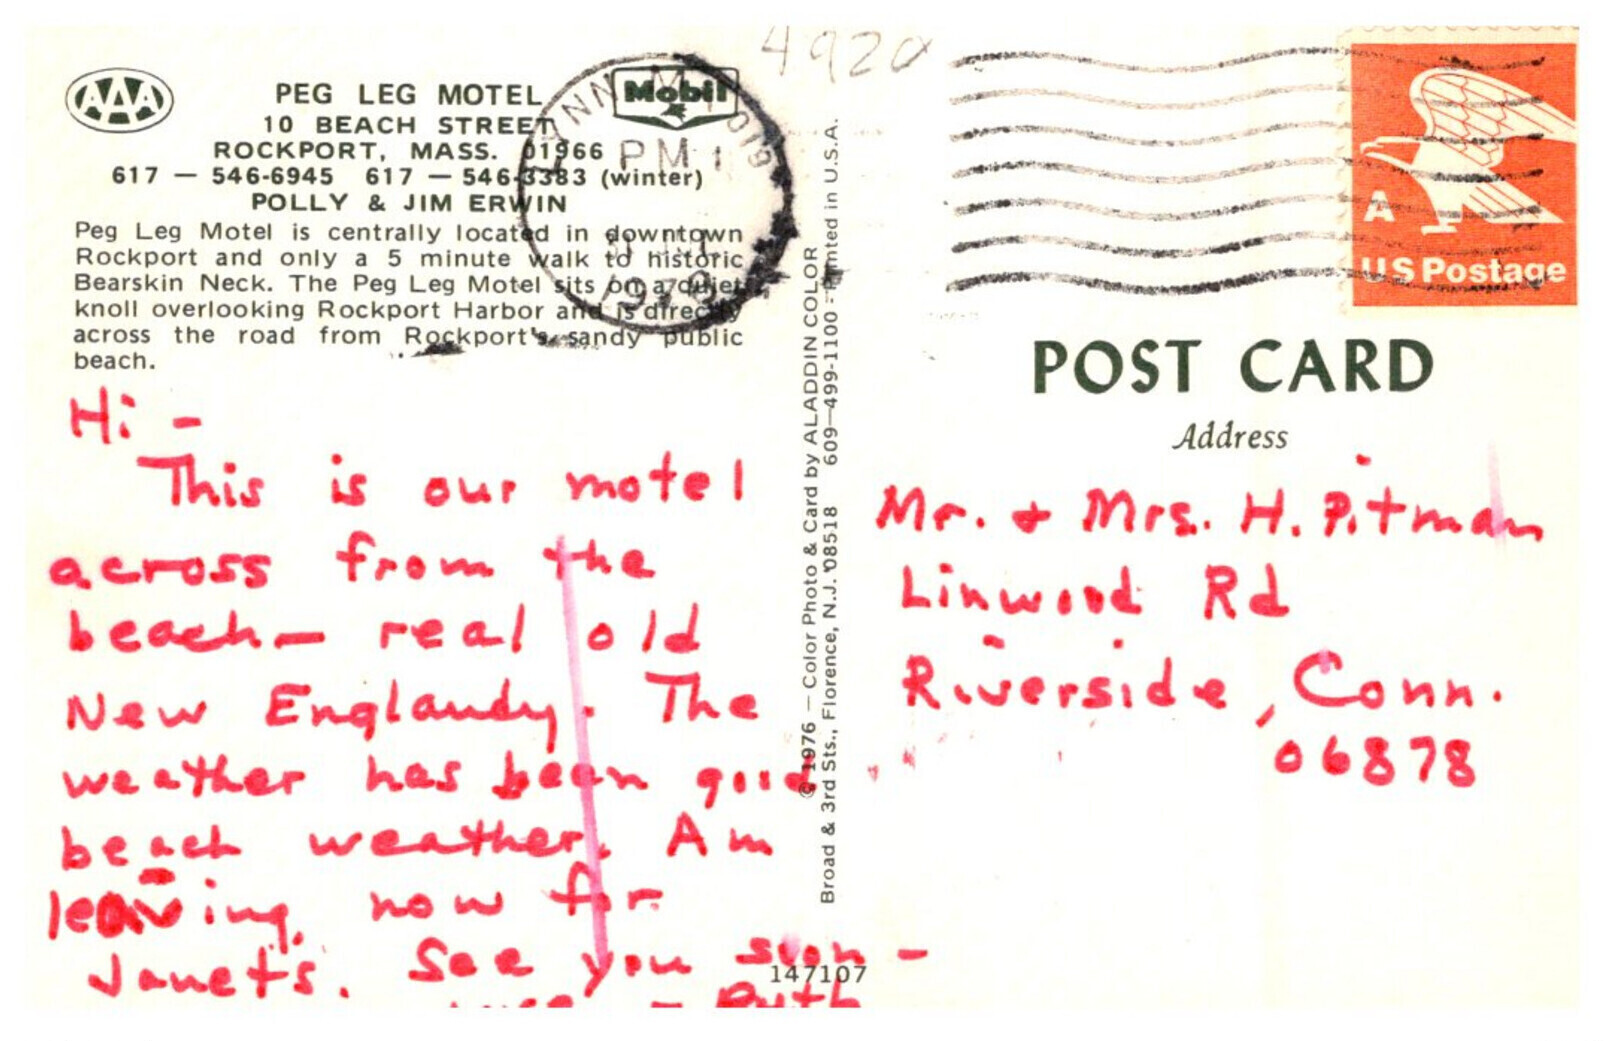 AAA
PEG LEG MOTEL
10 BEACH STREET
ROCKPORT, MASS. 01966
617 — 546-6945 617 — 546-3383 (winter)
POLLY & JIM ERWIN
Mobil
PM
Peg Leg Motel is centrally located in downtown
Rockport and only a 5 minute walk to historic
Bearskin Neck. The Peg Leg Motel sits on a quiet
knoll overlooking Rockport Harbor and is directly
across the road from Rockport's sandy public
beach.
Hi -
This is our motel
across from the
beach — real old
New Englandy. The
weather has been good
beach weather. Am
leaving now for
Janet's. See you soon -
Ruth
147107
© 1976 — Color Photo & Card by ALADDIN COLOR
Broad & 3rd Sts., Florence, N.J. 08518 609—499-1100 - Printed in U.S.A.
4920
A
US Postage
POST CARD
Address
Mr. + Mrs. H. Pitman
Linwood Rd
Riverside, Conn.
06878